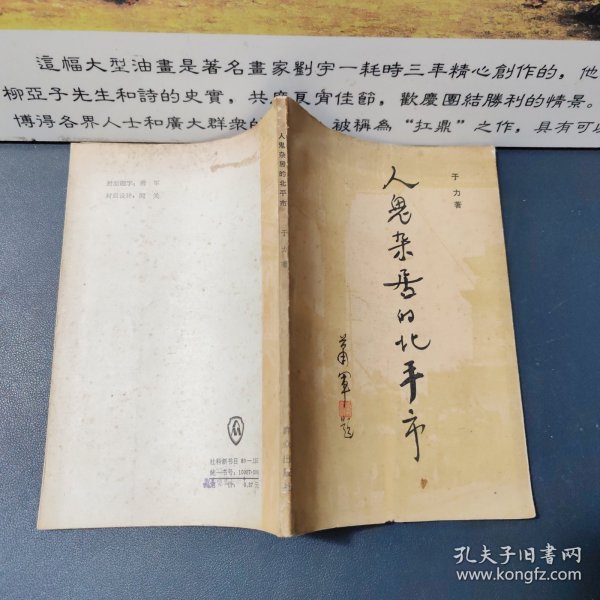 這幅大型油畫是著名畫家劉宇一耗時三年精心創作的，他
柳亞子先生和詩的史實，共度良宵佳節，歡慶團結勝利的情景。
博得各界人士和廣大群衆的
被稱為“扛鼎”之作，具有可以
封面题字：萧军
人鬼杂居的北平市
于力著
于力著
人鬼杂居的北平市
萧軍题
群众出版社
社科新书目
统一书号：10067
0.37元
孔夫子旧书网
www.kongfz.com